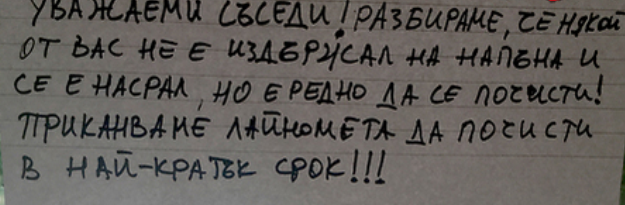 УВАЖАЕМИ СЪСЕДИ! РАЗБИРАМЕ, ЧЕ НЯКОЙ
ОТ ВАС НЕ Е ИЗДЪРЖАЛ НА НАПЪНА И
СЕ Е НАСРАЛ, НО Е РЕДНО ДА СЕ ПОЧИСТИ!
ПРИКАНВАМЕ ЛАЙНОМЕТА ДА ПОЧИСТИ
В НАЙ-КРАТЪК СРОК!!!